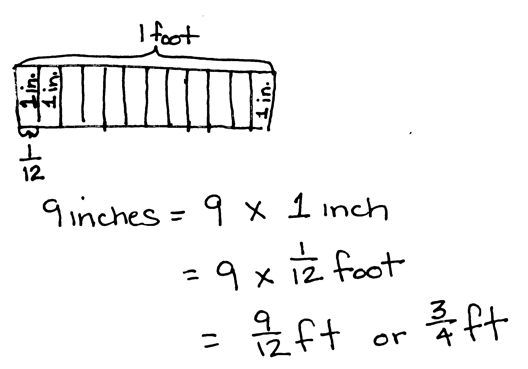 1 foot
1 in. 1 in. 1 in.
1/12
9 inches = 9 x 1 inch
= 9 x 1/12 foot
= 9/12 ft or 3/4 ft